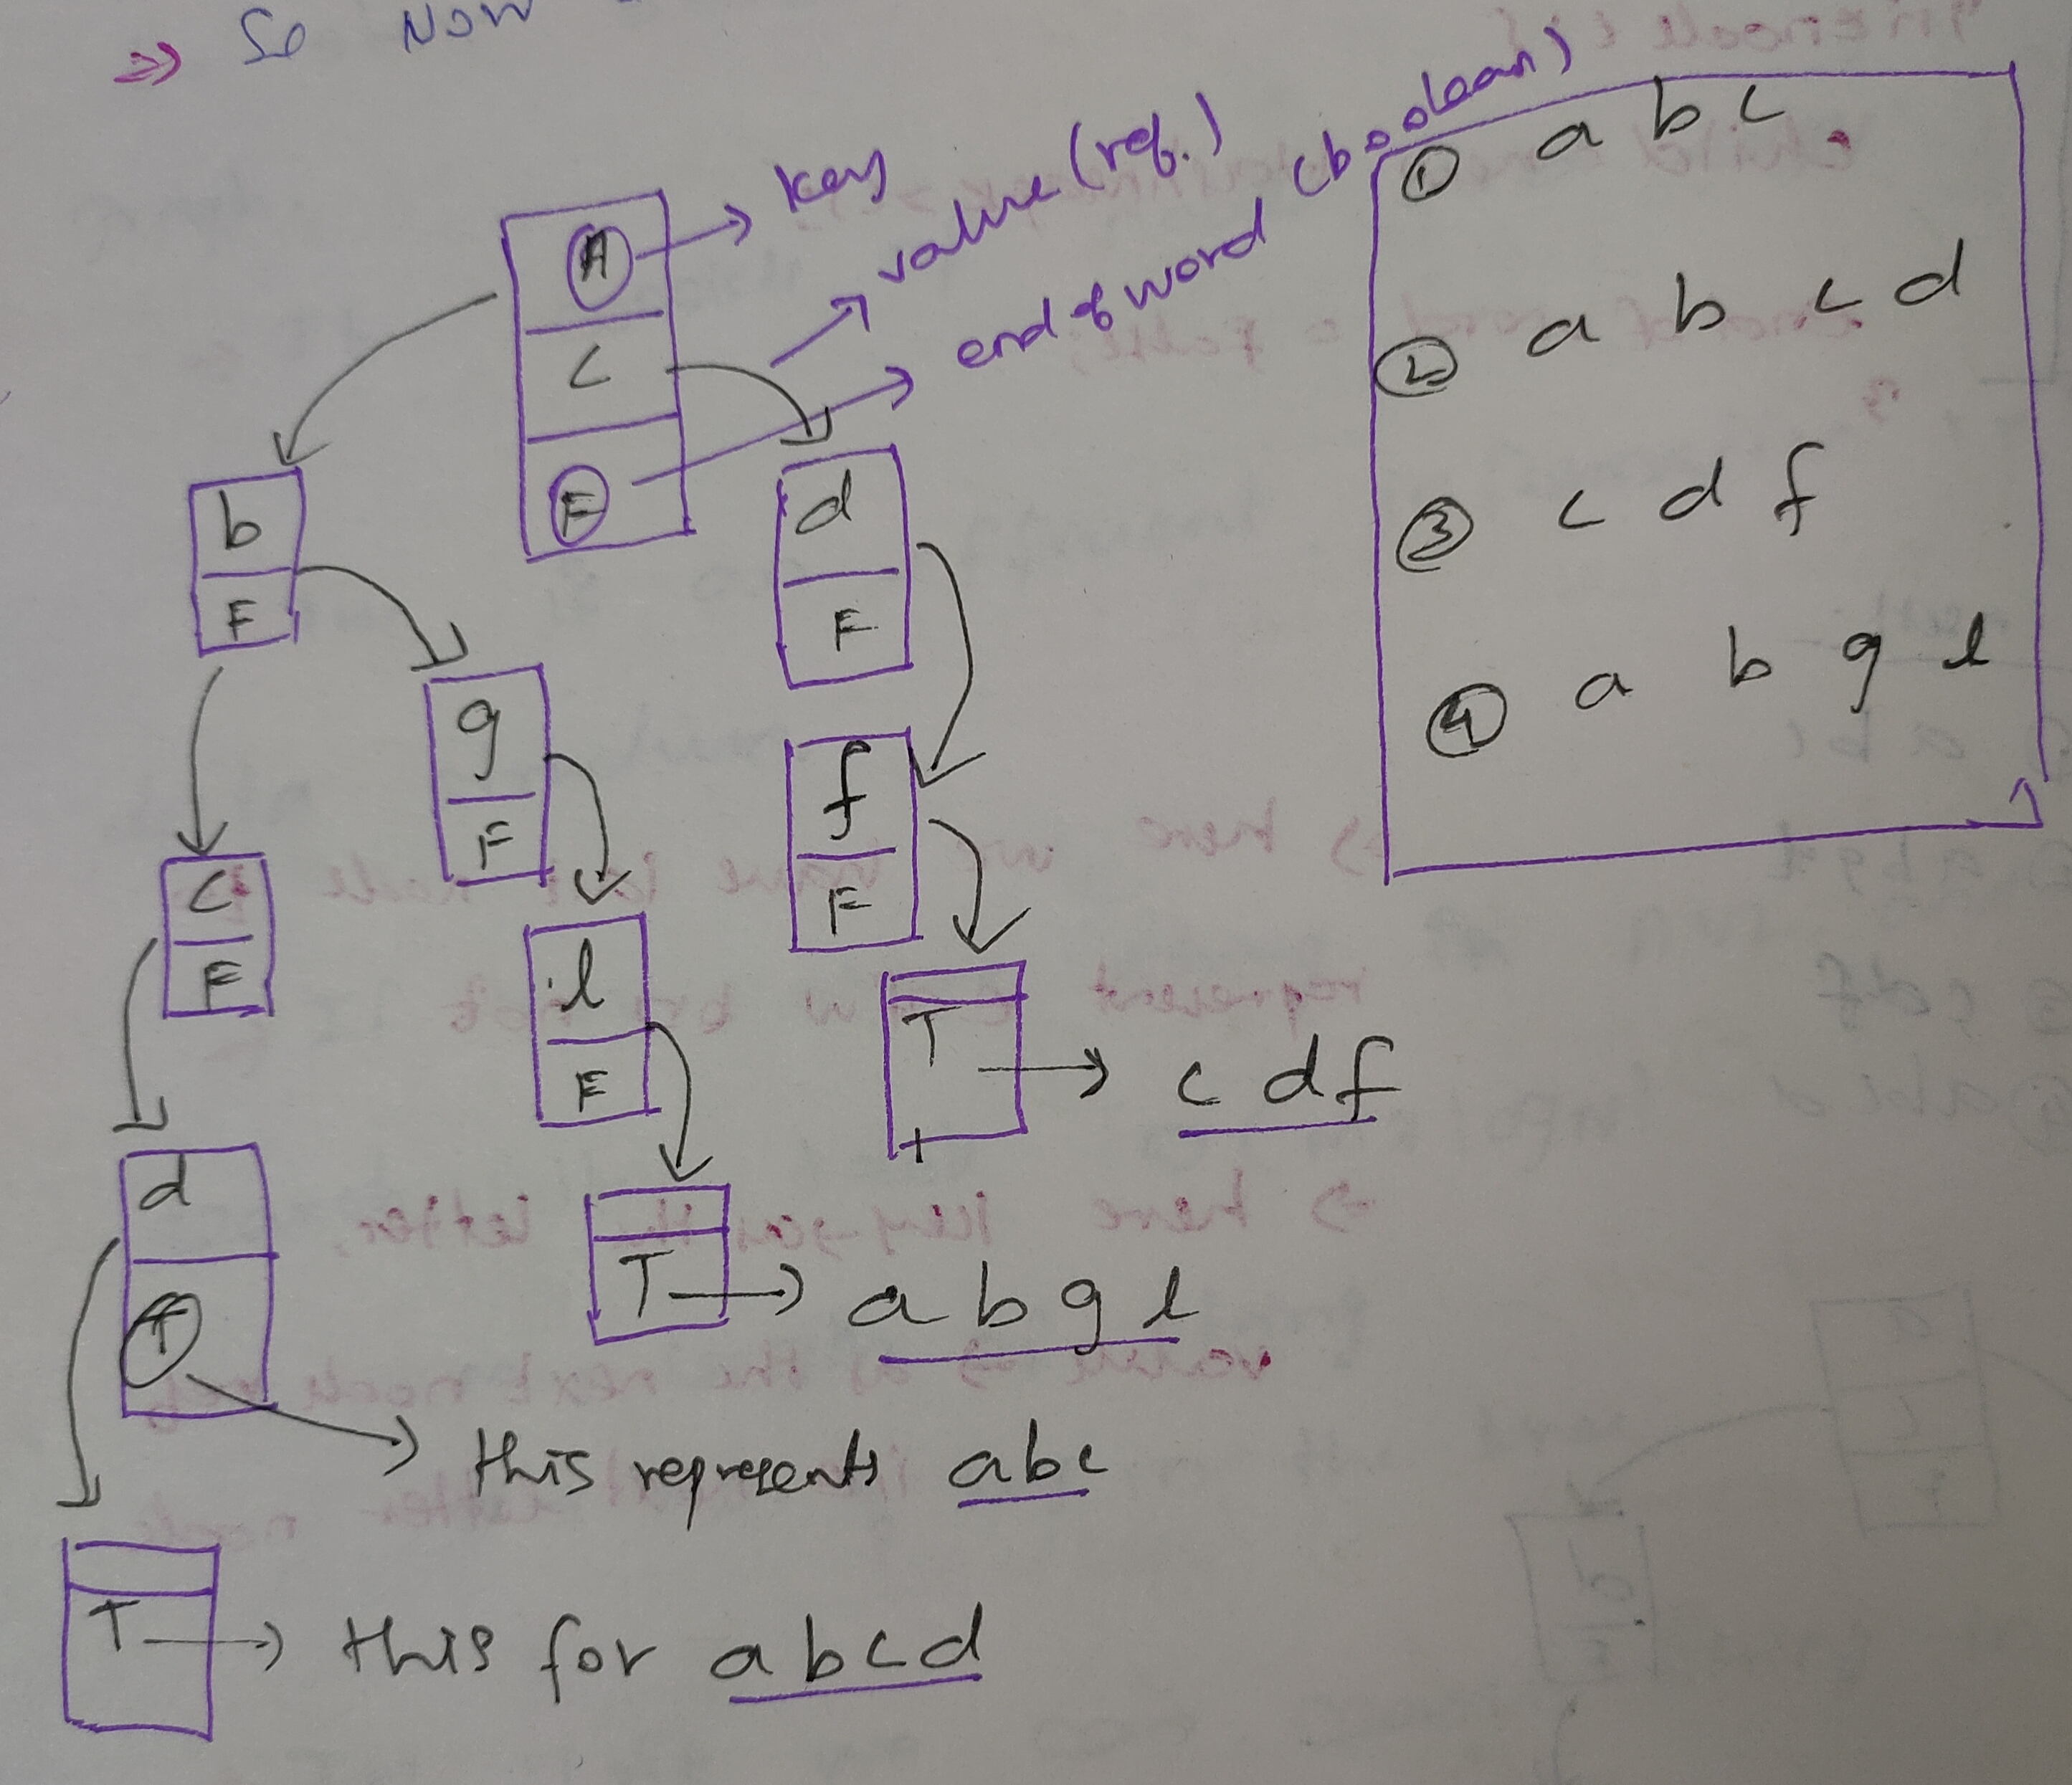 ⇒ So Now
key
value (ref.)
end of word (boolean)
A
C
F
① a b c
② a b c d
③ c d f
④ a b g l
b
F
d
F
g
F
f
F
c
F
l
F
T → c d f
d
T
T → a b g l
this represents abc
T → this for abcd